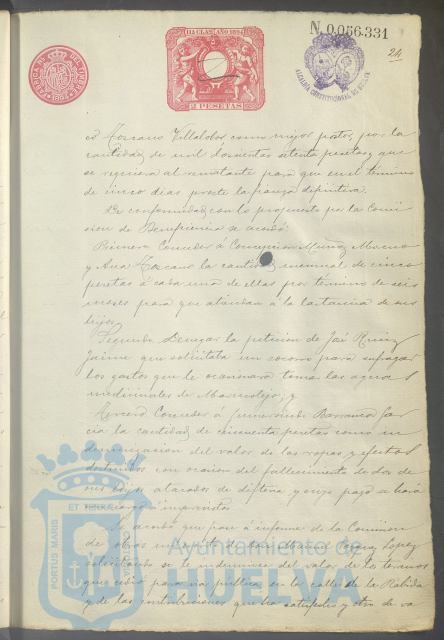 11ª CLASE AÑO 1894
2 PESETAS
N. 0.056.331
24
FABRICA NAL DEL TIMBRE
1894
ALCALDIA CONSTITUCIONAL DE HUELVA
co Toscano Villalobos como mejor postor, por la
cantidad de mil doscientas ochenta pesetas y que
se requiera al rematante para que en el termino
de cinco dias preste la fianza definitiva.
De conformidad con lo propuesto por la Comi
sion de Beneficencia se acordó:
Primero Conceder á Concepcion Muñoz Moreno
y Ana Toscano la cantidad mensual de cinco
pesetas á cada una de ellas por término de seis
meses para que atiendan á la lactancia de sus
hijos.
Segundo Denegar la peticion de José Ruiz
Jaime que solicitaba un socorro para sufragar
los gastos que le ocasionara tomar las aguas
medicinales de y
Tercero Conceder á Barranco Gar
cia la cantidad de cincuenta pesetas como in
demnizacion del valor de las ropas y efectos
destruidos con ocasion del fallecimiento de dos de
sus hijos atacados de difteria, y cuyo pago se hará
con cargo á imprevistos
Se acordó que pase á informe de la Comision
de obras instancia de Lopez
solicitando se le indemnice del valor de los terrenos
que cedió para via publica en la calle de la Rabida
y de las contribuciones que ha satisfecho y otro de va
PORTUS MARIS ET TERRAE
Ayuntamiento de
HUELVA